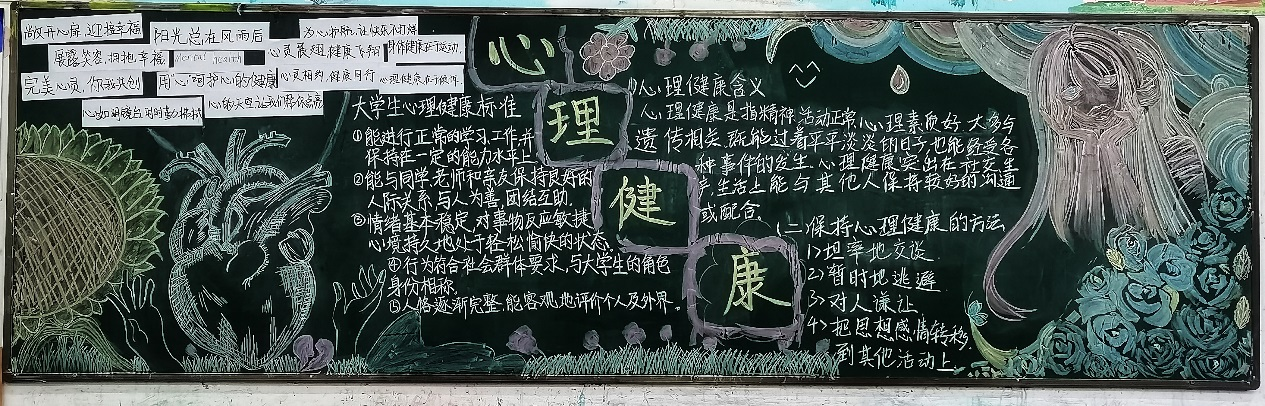 敞开心扉,迎接幸福
阳光总在风雨后
展露笑容,拥抱幸福
Mental Health
心灵展翅,健康飞翔
身体健康在于运动,
完美心灵,你我共创
用心呵护心的健康
心灵相约,健康同行
心理健康在于
大学生心理健康标准
①能进行正常的学习工作并
保持在一定的能力水平上
②能与同学老师和亲友保持良好的
人际关系,与人为善,团结互助.
③情绪基本稳定,对事物反应敏捷
心境持久地处于轻松愉快的状态.
④行为符合社会群体要求,与大学生的角色
身份相称.
⑤人格逐渐完整,能客观地评价个人及外界.
心
理
健
康
心理健康含义
心理健康是指精神活动正常心理素质好大多与
遗传相关.既能过着平平淡淡的日子也能经受各
种事件的发生.心理健康突出在社交生
产生活上能与其他人保持较好的沟通
或配合.
(二)保持心理健康的方法
1)坦率地交谈.
2)暂时地逃避
3)对人谦让.
4)把思想感情转移,
到其他活动上.